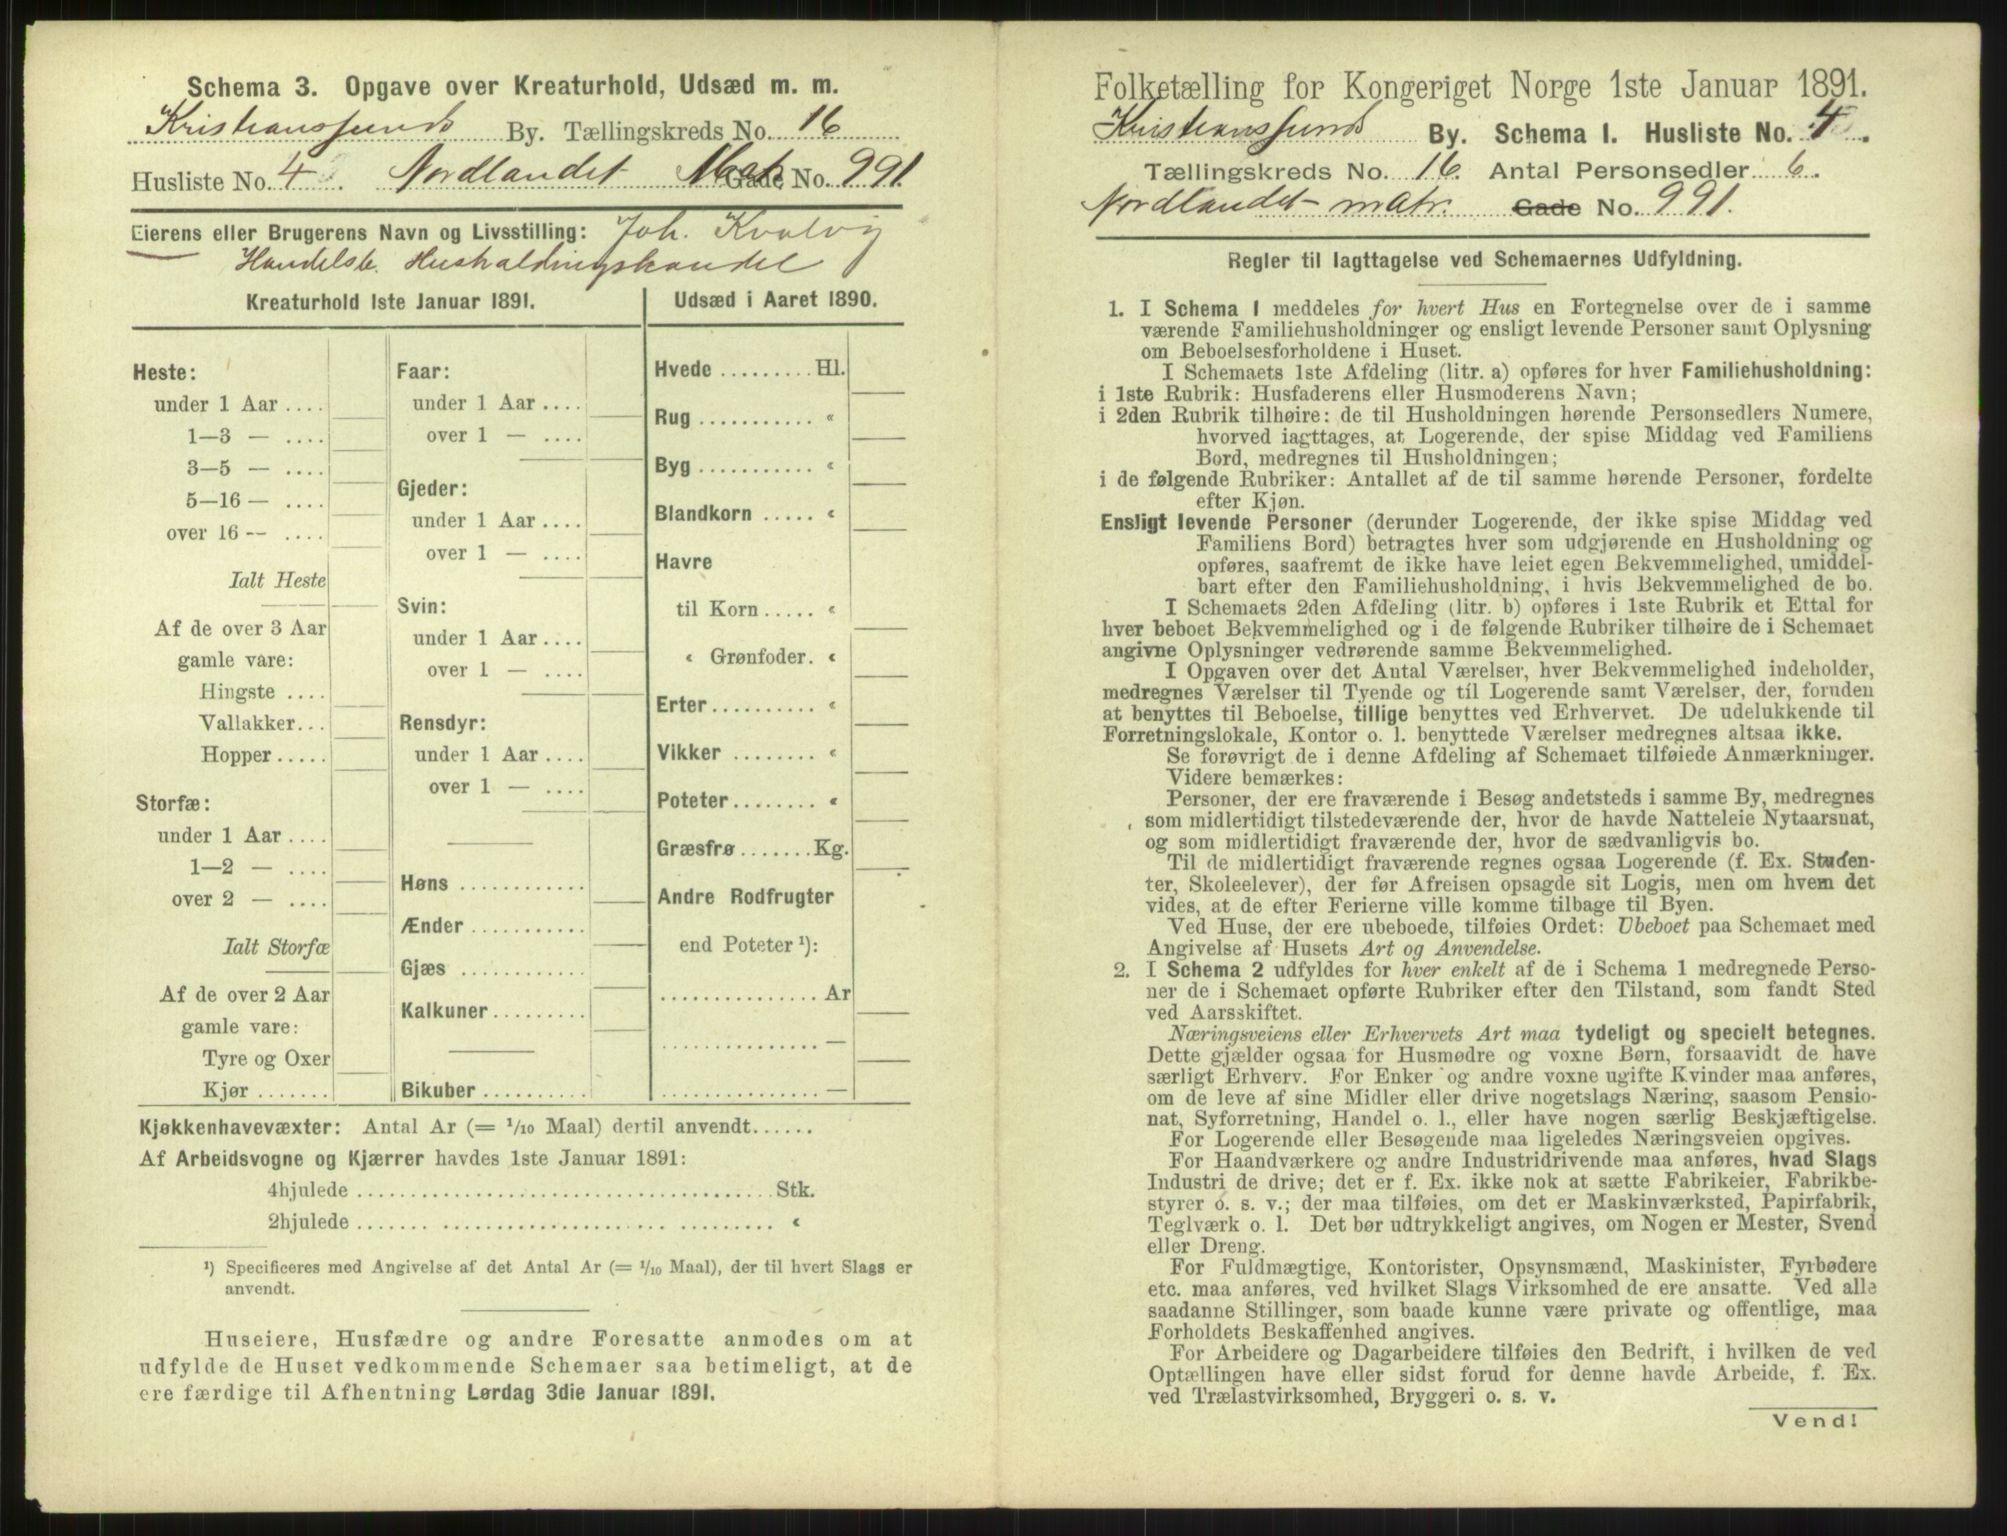 Schema 3. Opgave over Kreaturhold, Udsæd m. m.
Kristianssunds By. Tællingskreds No. 16
Husliste No. 4. Nordlandet Matr. Gade No. 991.
Eierens eller Brugerens Navn og Livsstilling: Joh. Kvalvig
Handelsb. Husholdningshandel
Kreaturhold 1ste Januar 1891.
Heste:
under 1 Aar ....
1—3 — ....
3—5 — ....
5—16 — ....
over 16 — ....
Ialt Heste
Af de over 3 Aar
gamle vare:
Hingste ....
Vallakker...
Hopper.....
Storfæ:
under 1 Aar ....
1—2 — ....
over 2 — ....
Ialt Storfæ
Af de over 2 Aar
gamle vare:
Tyre og Oxer
Kjør .......
Faar:
under 1 Aar ....
over 1 — ....
Gjeder:
under 1 Aar ....
over 1 — ....
Svin:
under 1 Aar ....
over 1 — ....
Rensdyr:
under 1 Aar ....
over 1 — ....
Høns ............
Ænder...........
Gjæs ...........
Kalkuner.........
Bikuber ..........
Udsæd i Aaret 1890.
Hvede ......... Hl.
Rug ........... «
Byg ........... «
Blandkorn ..... «
Havre
til Korn ..... «
« Grønfoder. «
Erter.......... «
Vikker ........ «
Poteter........ «
Græsfrø....... Kg.
Andre Rodfrugter
end Poteter ¹):
............... Ar
............... —
............... —
Kjøkkenhavevæxter: Antal Ar (= 1/10 Maal) dertil anvendt......
Af Arbeidsvogne og Kjærrer havdes 1ste Januar 1891:
4hjulede ........................................ Stk.
2hjulede ........................................ «
¹) Specificeres med Angivelse af det Antal Ar (= 1/10 Maal), der til hvert Slags er
anvendt.
Huseiere, Husfædre og andre Foresatte anmodes om at
udfylde de Huset vedkommende Schemaer saa betimeligt, at de
ere færdige til Afhentning Lørdag 3die Januar 1891.
Folketælling for Kongeriget Norge 1ste Januar 1891.
Kristianssunds By. Schema I. Husliste No. 4.
Tællingskreds No. 16. Antal Personsedler 6.
Nordlandet matr. Gade No. 991.
Regler til Iagttagelse ved Schemaernes Udfyldning.
1. I Schema 1 meddeles for hvert Hus en Fortegnelse over de i samme
værende Familiehusholdninger og ensligt levende Personer samt Oplysning
om Beboelsesforholdene i Huset.
I Schemaets 1ste Afdeling (litr. a) opføres for hver Familiehusholdning:
i 1ste Rubrik: Husfaderens eller Husmoderens Navn;
i 2den Rubrik tilhøire: de til Husholdningen hørende Personsedlers Numere,
hvorved iagttages, at Logerende, der spise Middag ved Familiens
Bord, medregnes til Husholdningen;
i de følgende Rubriker: Antallet af de til samme hørende Personer, fordelte
efter Kjøn.
Ensligt levende Personer (derunder Logerende, der ikke spise Middag ved
Familiens Bord) betragtes hver som udgjørende en Husholdning og
opføres, saafremt de ikke have leiet egen Bekvemmelighed, umiddel-
bart efter den Familiehusholdning, i hvis Bekvemmelighed de bo.
I Schemaets 2den Afdeling (litr. b) opføres i 1ste Rubrik et Ettal for
hver beboet Bekvemmelighed og i de følgende Rubriker tilhøire de i Schemaet
angivne Oplysninger vedrørende samme Bekvemmelighed.
I Opgaven over det Antal Værelser, hver Bekvemmelighed indeholder,
medregnes Værelser til Tyende og til Logerende samt Værelser, der, foruden
at benyttes til Beboelse, tillige benyttes ved Erhvervet. De udelukkende til
Forretningslokale, Kontor o. l. benyttede Værelser medregnes altsaa ikke.
Se forøvrigt de i denne Afdeling af Schemaet tilføiede Anmærkninger.
Videre bemærkes:
Personer, der ere fraværende i Besøg andetsteds i samme By, medregnes
som midlertidigt tilstedeværende der, hvor de havde Natteleie Nytaarsnat,
og som midlertidigt fraværende der, hvor de sædvanligvis bo.
Til de midlertidigt fraværende regnes ogsaa Logerende (f. Ex. Studen-
ter, Skoleelever), der før Afreisen opsagde sit Logis, men om hvem det
vides, at de efter Ferierne ville komme tilbage til Byen.
Ved Huse, der ere ubeboede, tilføies Ordet: Ubeboet paa Schemaet med
Angivelse af Husets Art og Anvendelse.
2. I Schema 2 udfyldes for hver enkelt af de i Schema 1 medregnede Perso-
ner de i Schemaet opførte Rubriker efter den Tilstand, som fandt Sted
ved Aarsskiftet.
Næringsveiens eller Erhvervets Art maa tydeligt og specielt betegnes.
Dette gjælder ogsaa for Husmødre og voxne Børn, forsaavidt de have
særligt Erhverv. For Enker og andre voxne ugifte Kvinder maa anføres,
om de leve af sine Midler eller drive nogetslags Næring, saasom Pensio-
nat, Syforretning, Handel o. l., eller have nogen særlig Beskjæftigelse.
For Logerende eller Besøgende maa ligeledes Næringsveien opgives.
For Haandværkere og andre Industridrivende maa anføres, hvad Slags
Industri de drive; det er f. Ex. ikke nok at sætte Fabrikeier, Fabrikbe-
styrer o. s. v.; der maa tilføies, om det er Maskinværksted, Papirfabrik,
Teglværk o. l. Det bør udtrykkeligt angives, om Nogen er Mester, Svend
eller Dreng.
For Fuldmægtige, Kontorister, Opsynsmænd, Maskinister, Fyrbødere
etc. maa anføres, ved hvilket Slags Virksomhed de ere ansatte. Ved alle
saadanne Stillinger, som baade kunne være private og offentlige, maa
Forholdets Beskaffenhed angives.
For Arbeidere og Dagarbeidere tilføies den Bedrift, i hvilken de ved
Optællingen have eller sidst forud for denne havde Arbeide, f. Ex.
ved Trælastvirksomhed, Bryggeri o. s. v.
Vend!